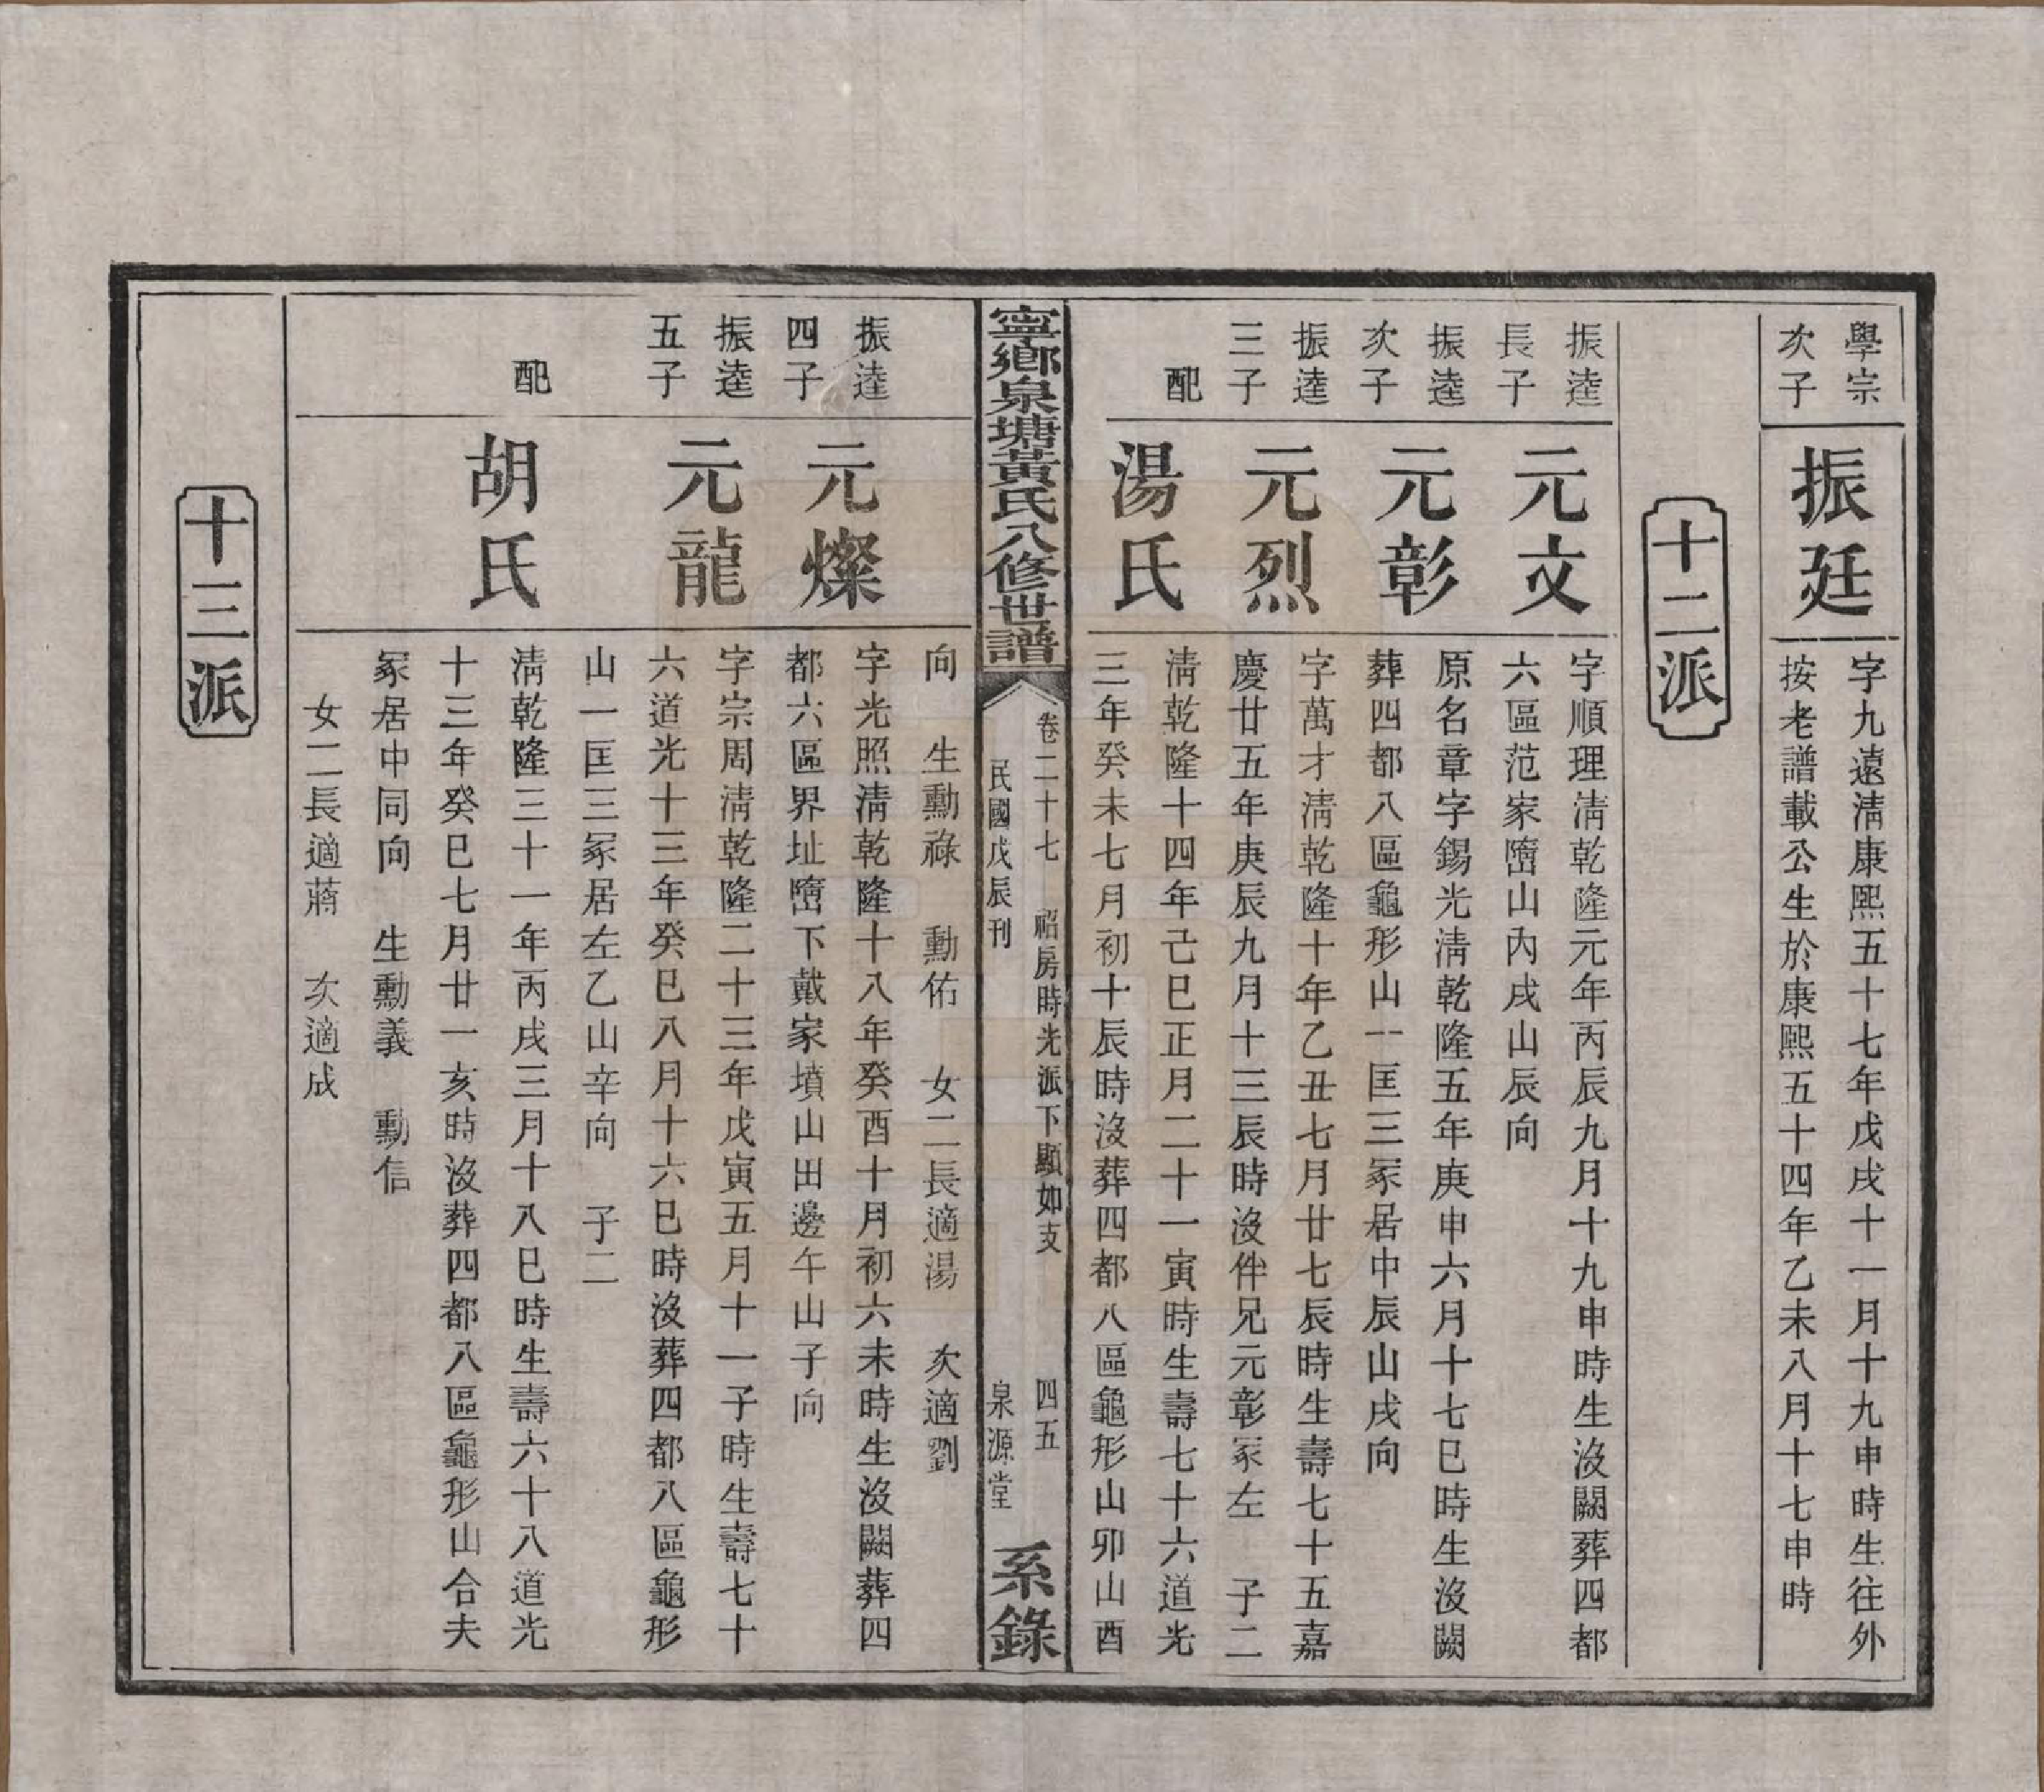 學宗
次子
振廷
字九遠淸康熙五十七年戊戌十一月十九申時生往外
按老譜載公生於康熙五十四年乙未八月十七申時
十二派
振逵
長子
元文
字順理淸乾隆元年丙辰九月十九申時生沒闕葬四都
六區范家㙮山內戌山辰向
振逵
次子
元彰
原名章字錫光淸乾隆五年庚申六月十七巳時生沒闕
葬四都八區龜形山一匡三冢居中辰山戌向
振逵
三子
元烈
字萬才淸乾隆十年乙丑七月廿七辰時生壽七十五嘉
慶廿五年庚辰九月十三辰時沒伴兄元彰冢左 子二
配
湯氏
淸乾隆十四年己巳正月二十一寅時生壽七十六道光
三年癸未七月初十辰時沒葬四都八區龜形山卯山酉
寧鄉泉塘黃氏八修世譜
卷二十七 昭房時光派下顯如支 四五
民國戊辰刊 泉源堂
系錄
向 生勳祿 勳佑 女二長適湯 次適劉
振逵
四子
元燦
字光照淸乾隆十八年癸酉十月初六未時生沒闕葬四
都六區界址㙮下戴家墳山田邊午山子向
振逵
五子
元龍
字宗周淸乾隆二十三年戊寅五月十一子時生壽七十
六道光十三年癸巳八月十六巳時沒葬四都八區龜形
山一匡三冢居左乙山辛向 子二
配
胡氏
淸乾隆三十一年丙戌三月十八巳時生壽六十八道光
十三年癸巳七月廿一亥時沒葬四都八區龜形山合夫
冢居中同向 生勳義 勳信
女二長適蔣 次適成
十三派